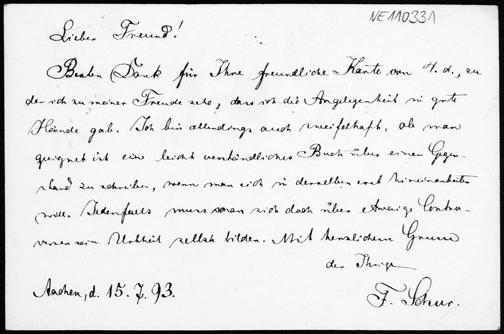 NE110331
Lieber Freund!
Besten Dank für Ihre freundliche Karte vom 4. d., zu
der ich zu meiner Freude sehe, dass ich die Angelegenheit in gute
Hände gab. Ich bin allerdings auch zweifelhaft, ob man
geeignet ist ein leicht verständliches Buch über einen Gegen-
stand zu schreiben, wenn man sich in denselben erst hineinarbeiten
will. Jedenfalls muss man sich doch über etwaige Contro-
versen sein Urtheil selbst bilden. Mit herzlichem Gruss
der Ihrige
Aachen, d. 15. 7. 93.
F. Schur.